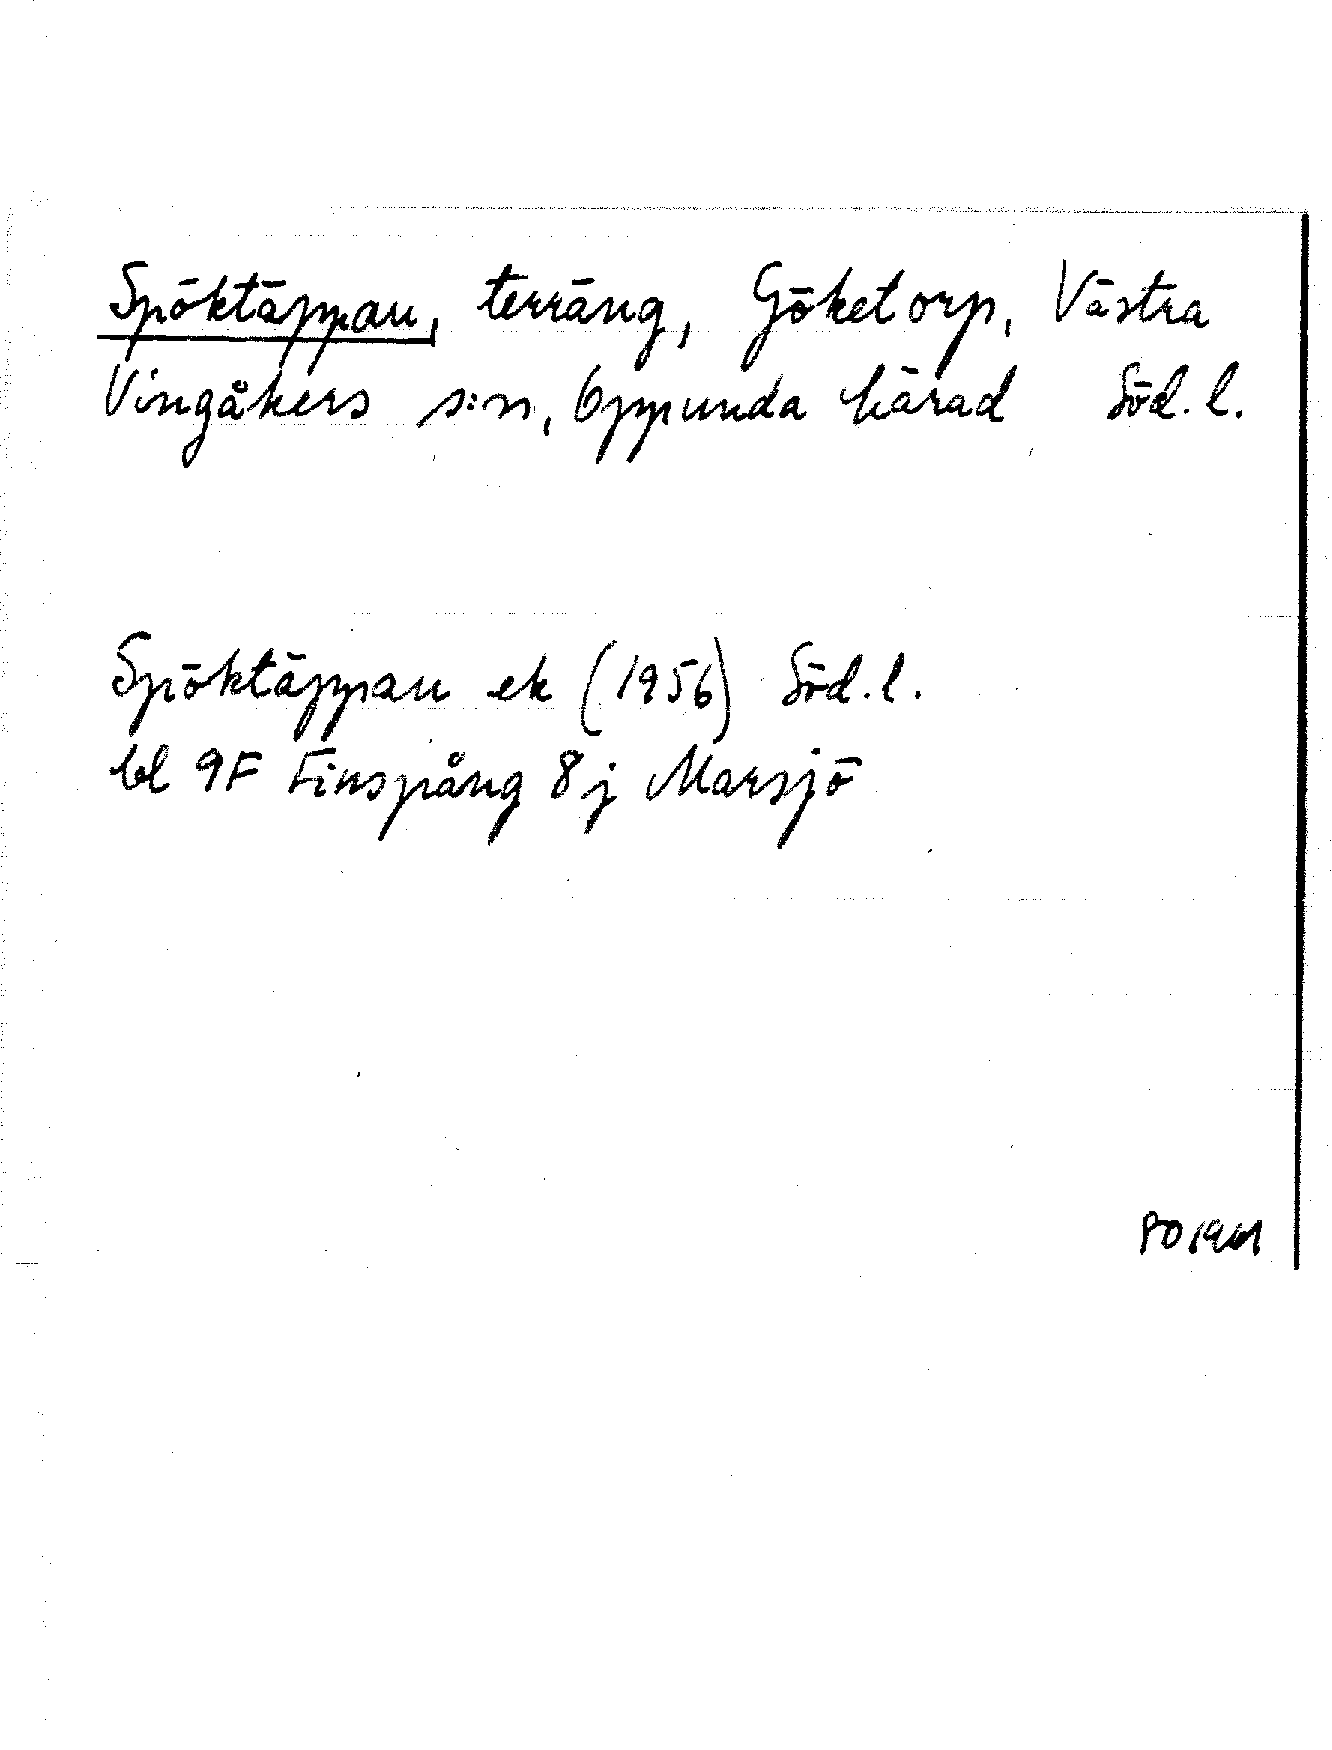 Spöktäppan, terräng, Göketorp, Västra
Vingåkers s:n, Oppunda härad Söd. l.
Spöktäppan ek (1956) Söd. l.
bl 9F Finspång 8j Marsjö
PO